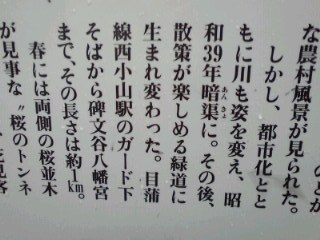 のどか
な農村風景が見られた。
しかし、都市化とと
もに川も姿を変え、昭
和39年暗渠に。その後、
散策が楽しめる緑道に
生まれ変わった。目蒲
線西小山駅のガード下
そばから碑文谷八幡宮
まで、その長さは約1km。
春には両側の桜並木
が見事な〝桜のトンネ
花見客